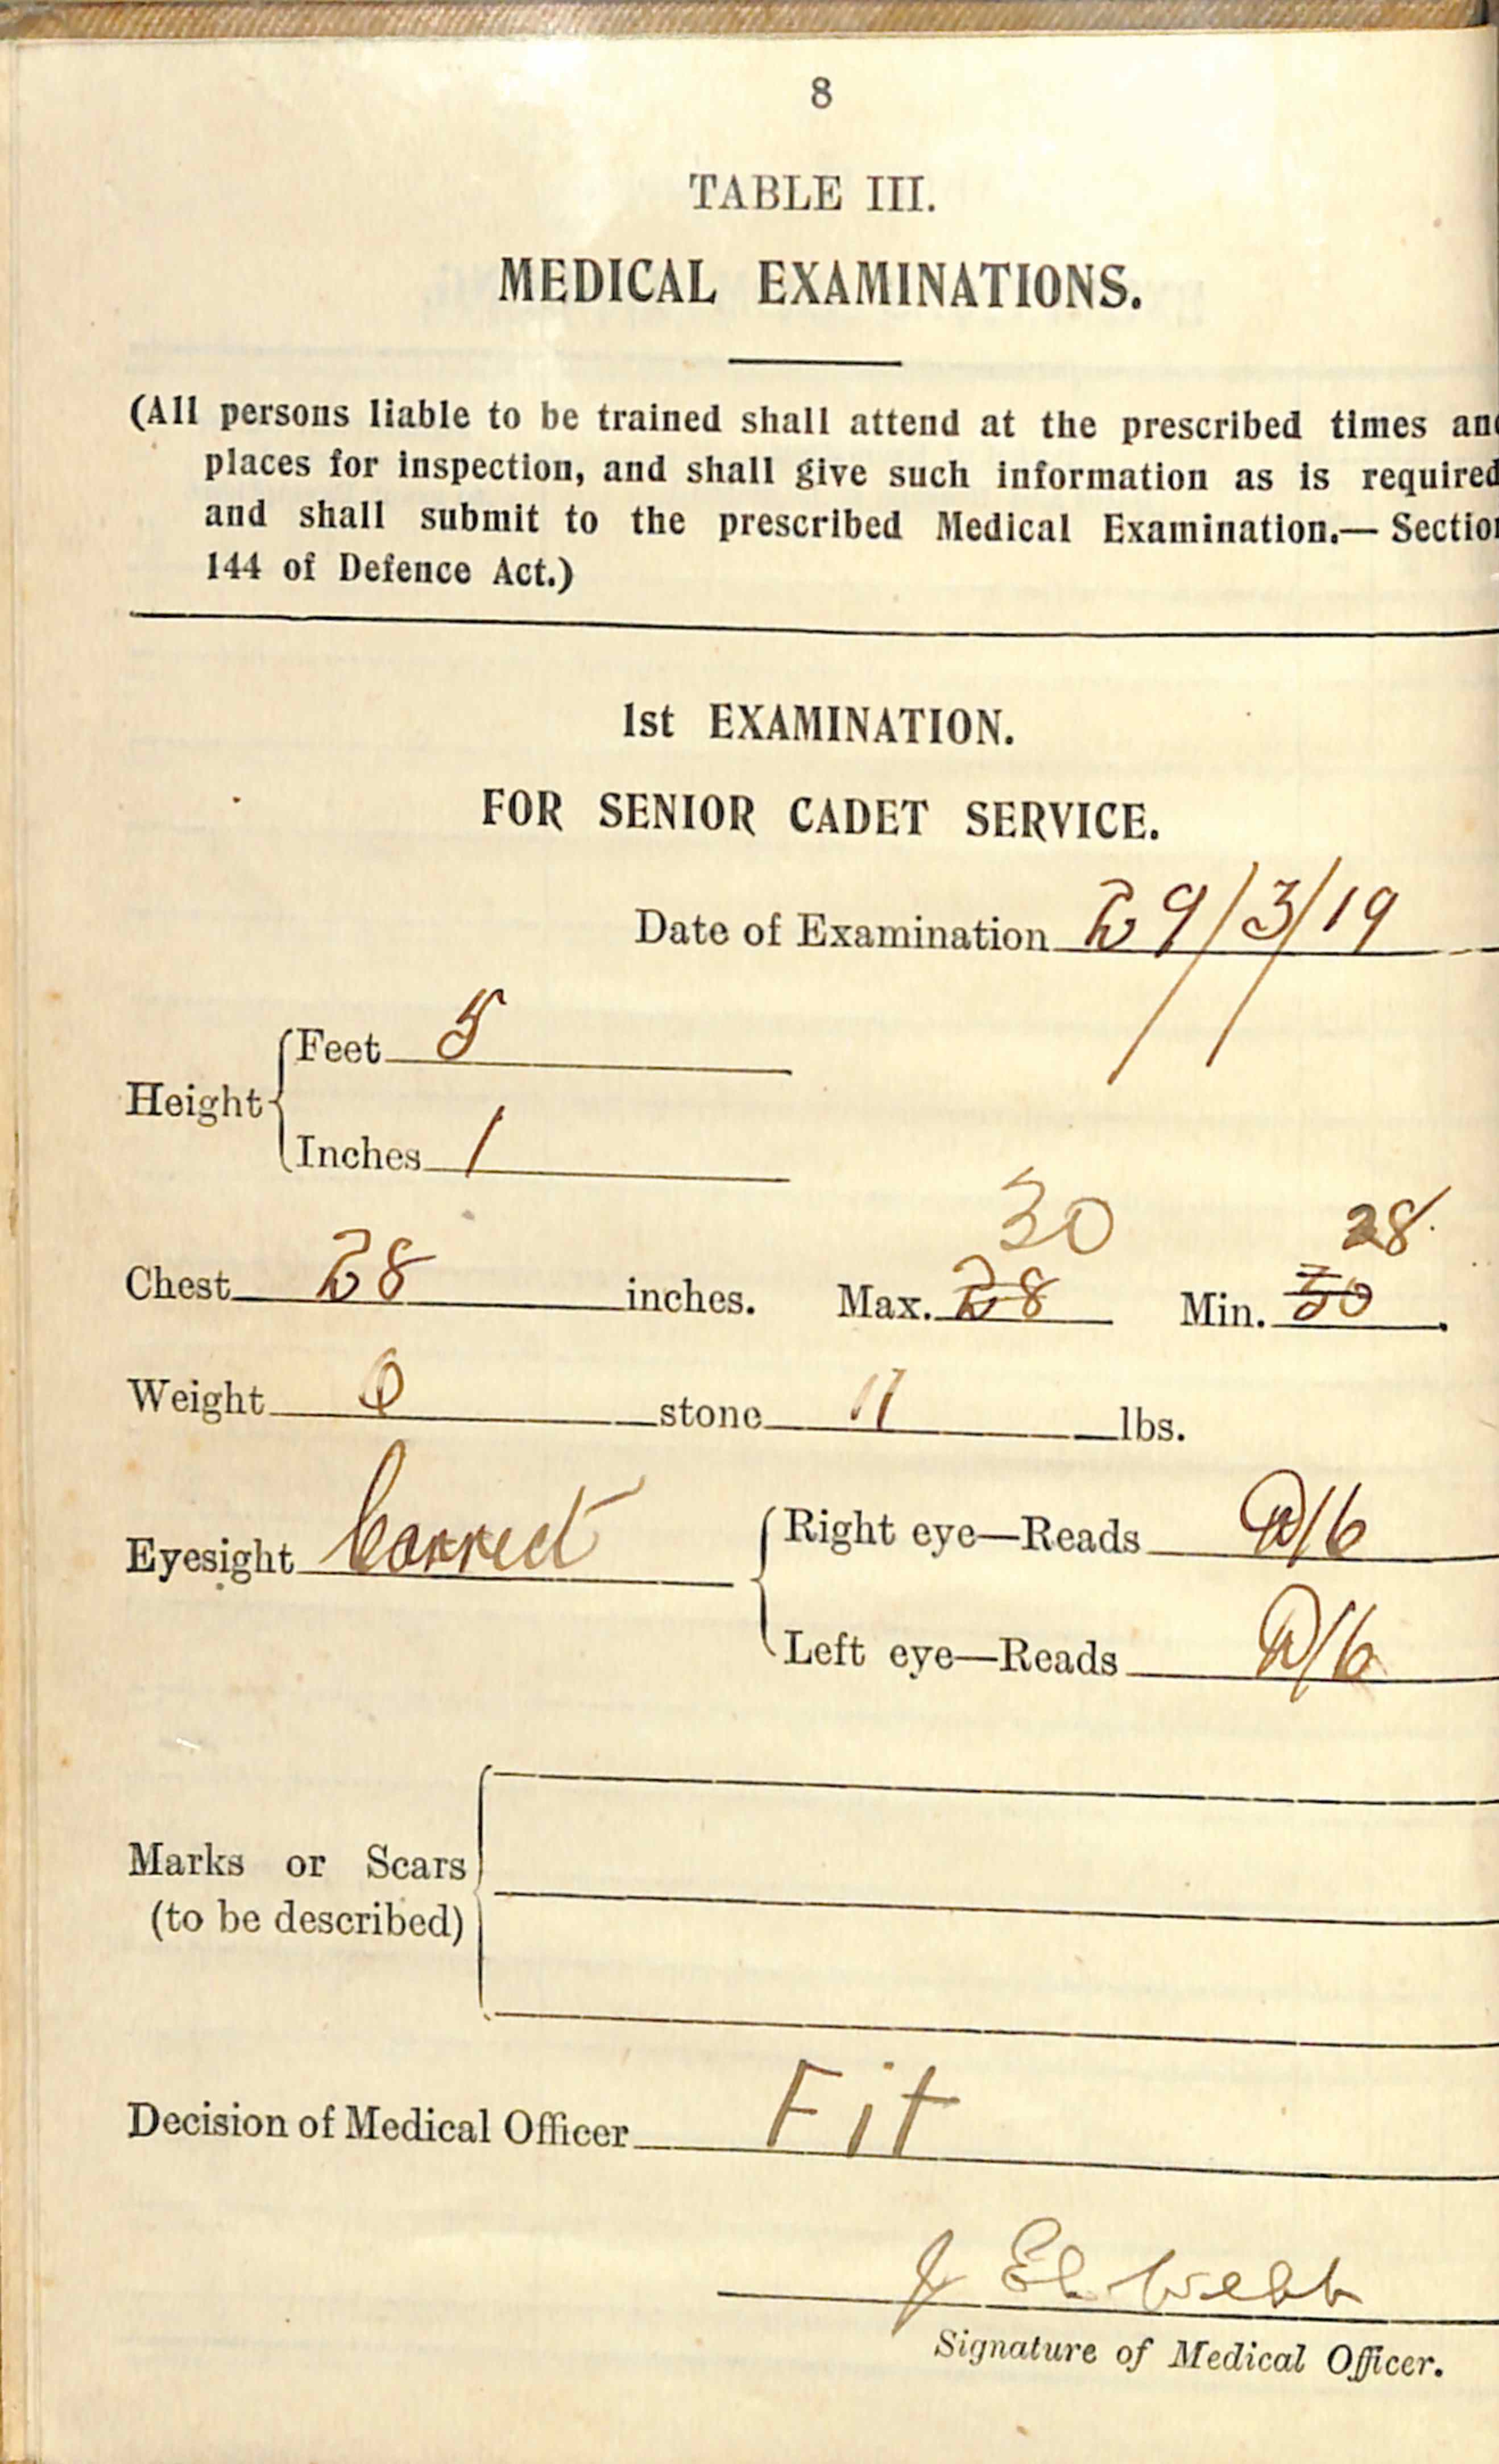 8
TABLE III.
MEDICAL EXAMINATIONS.
(All persons liable to be trained shall attend at the prescribed times and
places for inspection, and shall give such information as is required
and shall submit to the prescribed Medical Examination.— Section
144 of Defence Act.)
1st EXAMINATION.
FOR SENIOR CADET SERVICE.
Date of Examination 29/3/19
Height
Feet 5
Inches 1
30 28
Chest 28 inches. Max. 28 Min. 30.
Weight stone 11 lbs.
Eyesight Correct
Right eye—Reads
Left eye—Reads
Marks or Scars
(to be described)
Decision of Medical Officer Fit
Webb
Signature of Medical Officer.